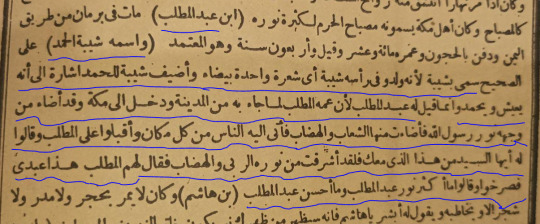 وكان اذا مر بها را
كالمصباح وكان أهل مكة يسمونه مصباح الحرم لكثرة نوره (ابن عبد المطلب) مات في برمان من طريق
اليمن ودفن بالحجون وعمره مائة وعشر وقيل وأربعون سنة وهو المعتمد (واسمه شيبة الحمد) على
الصحيح سمى بشيبة لأنه ولد وفى رأسه شيبة أى شعرة واحدة بيضاء وأضيف شيبة للحمد اشارة الى أنه
يعيش ويحمد وانما قيل له عبد المطلب لأن عمه المطلب لما جاء به من المدينة ودخل الى مكة وقد أضاء من
وجهه نور رسول الله فضاءت منها الشعاب والهضاب فأتى اليه الناس من كل مكان وأقبلوا على المطلب وقالوا
له أيها السيد من هذا الذى معك فلقد أشرقت من نوره الربى والهضاب فقال لهم المطلب هذا عبدى
فصرخوا وقالوا ما أكثر نور عبد المطلب وما أحسن عبد المطلب (بن هاشم) وكان لا يمر بحجر ولا مدر ولا
شجر الا و يخاطبه ويقول له أبشر يا هاشم فانه سيظهر من ظهرك